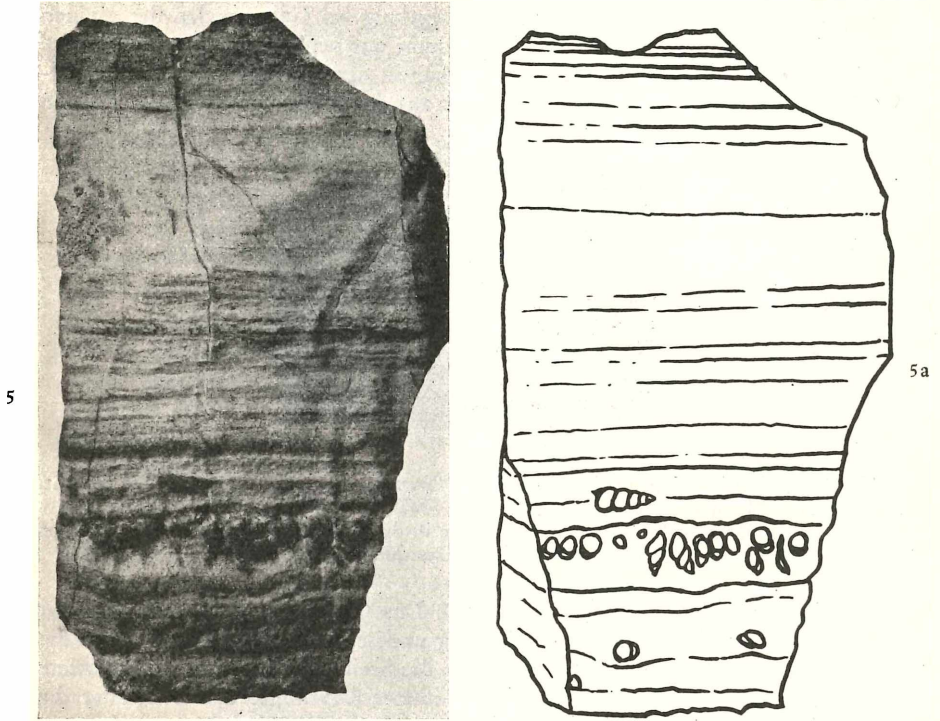 5
5a